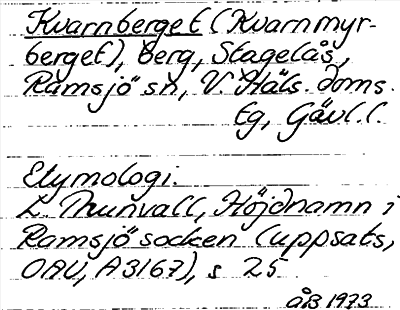 Kvarnberget (Kvarnmyr-
berget), berg, Stagelås,
Ramsjö sn, V. Häls. doms.
tg, Gävl. l.
Etymologi.
L. Thunvall, Höjdnamn i
Ramsjö socken (uppsats,
OAU, A3167), s 25
åB 1973